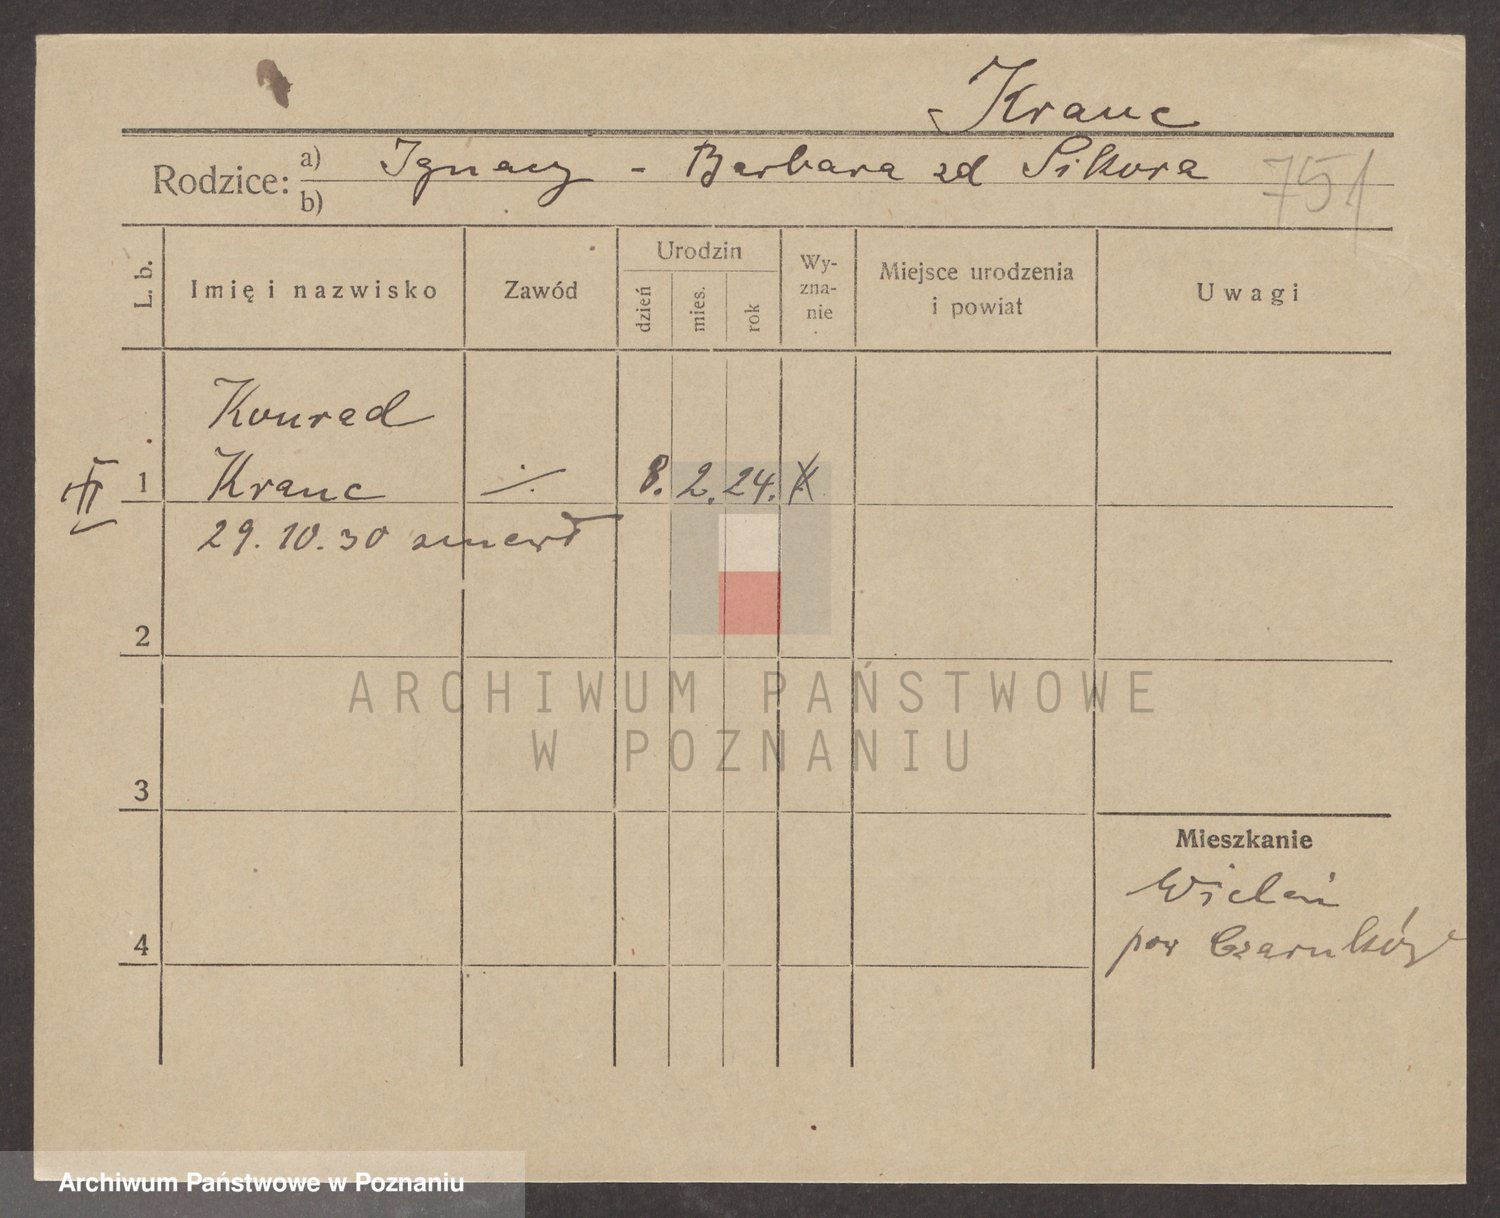 Kranc
Rodzice: a) Ignacy - Barbara zd Sikora
b)
751
L. b.
Imię i nazwisko
Zawód
Urodzin
dzień
mies.
rok
Wy-
zna-
nie
Miejsce urodzenia
i powiat
Uwagi
Konrad
1 Kranc ·/. 8. 2. 24. K.
29.10.30 zmarł
2
ARCHIWUM PAŃSTWOWE
W POZNANIU
3
Mieszkanie
Wieleń
pow Czarnków
4
Archiwum Państwowe w Poznaniu